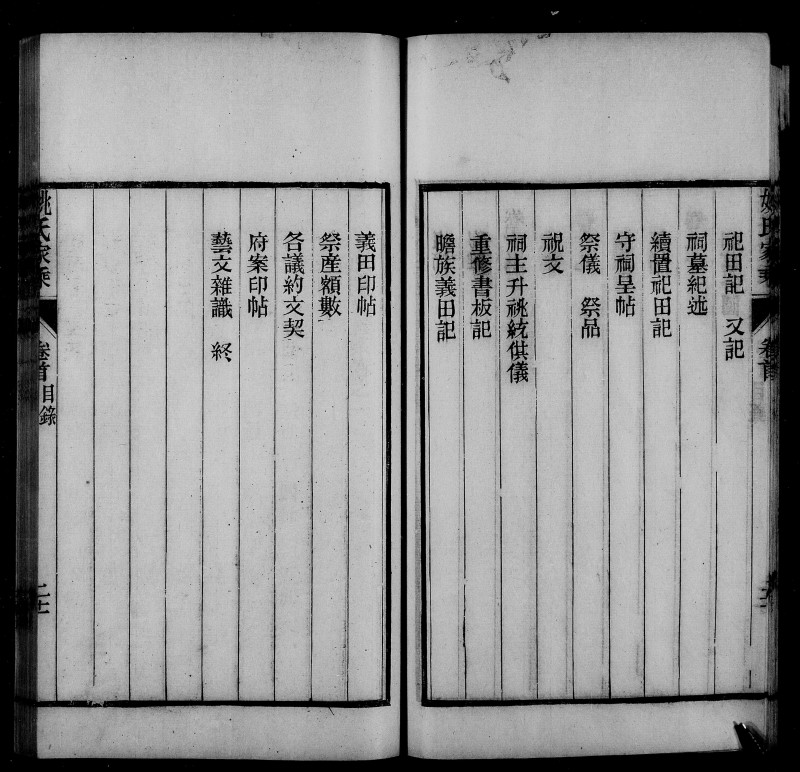 祀田記 又記
祠墓紀述
續置祀田記
守祠呈帖
祭儀 祭品
祝文
祠主升祧統供儀
重修書板記
贍族義田記
義田印帖
祭產額數
各議約文契
府案印帖
藝文雜識 終
姚氏家乘
卷首目錄